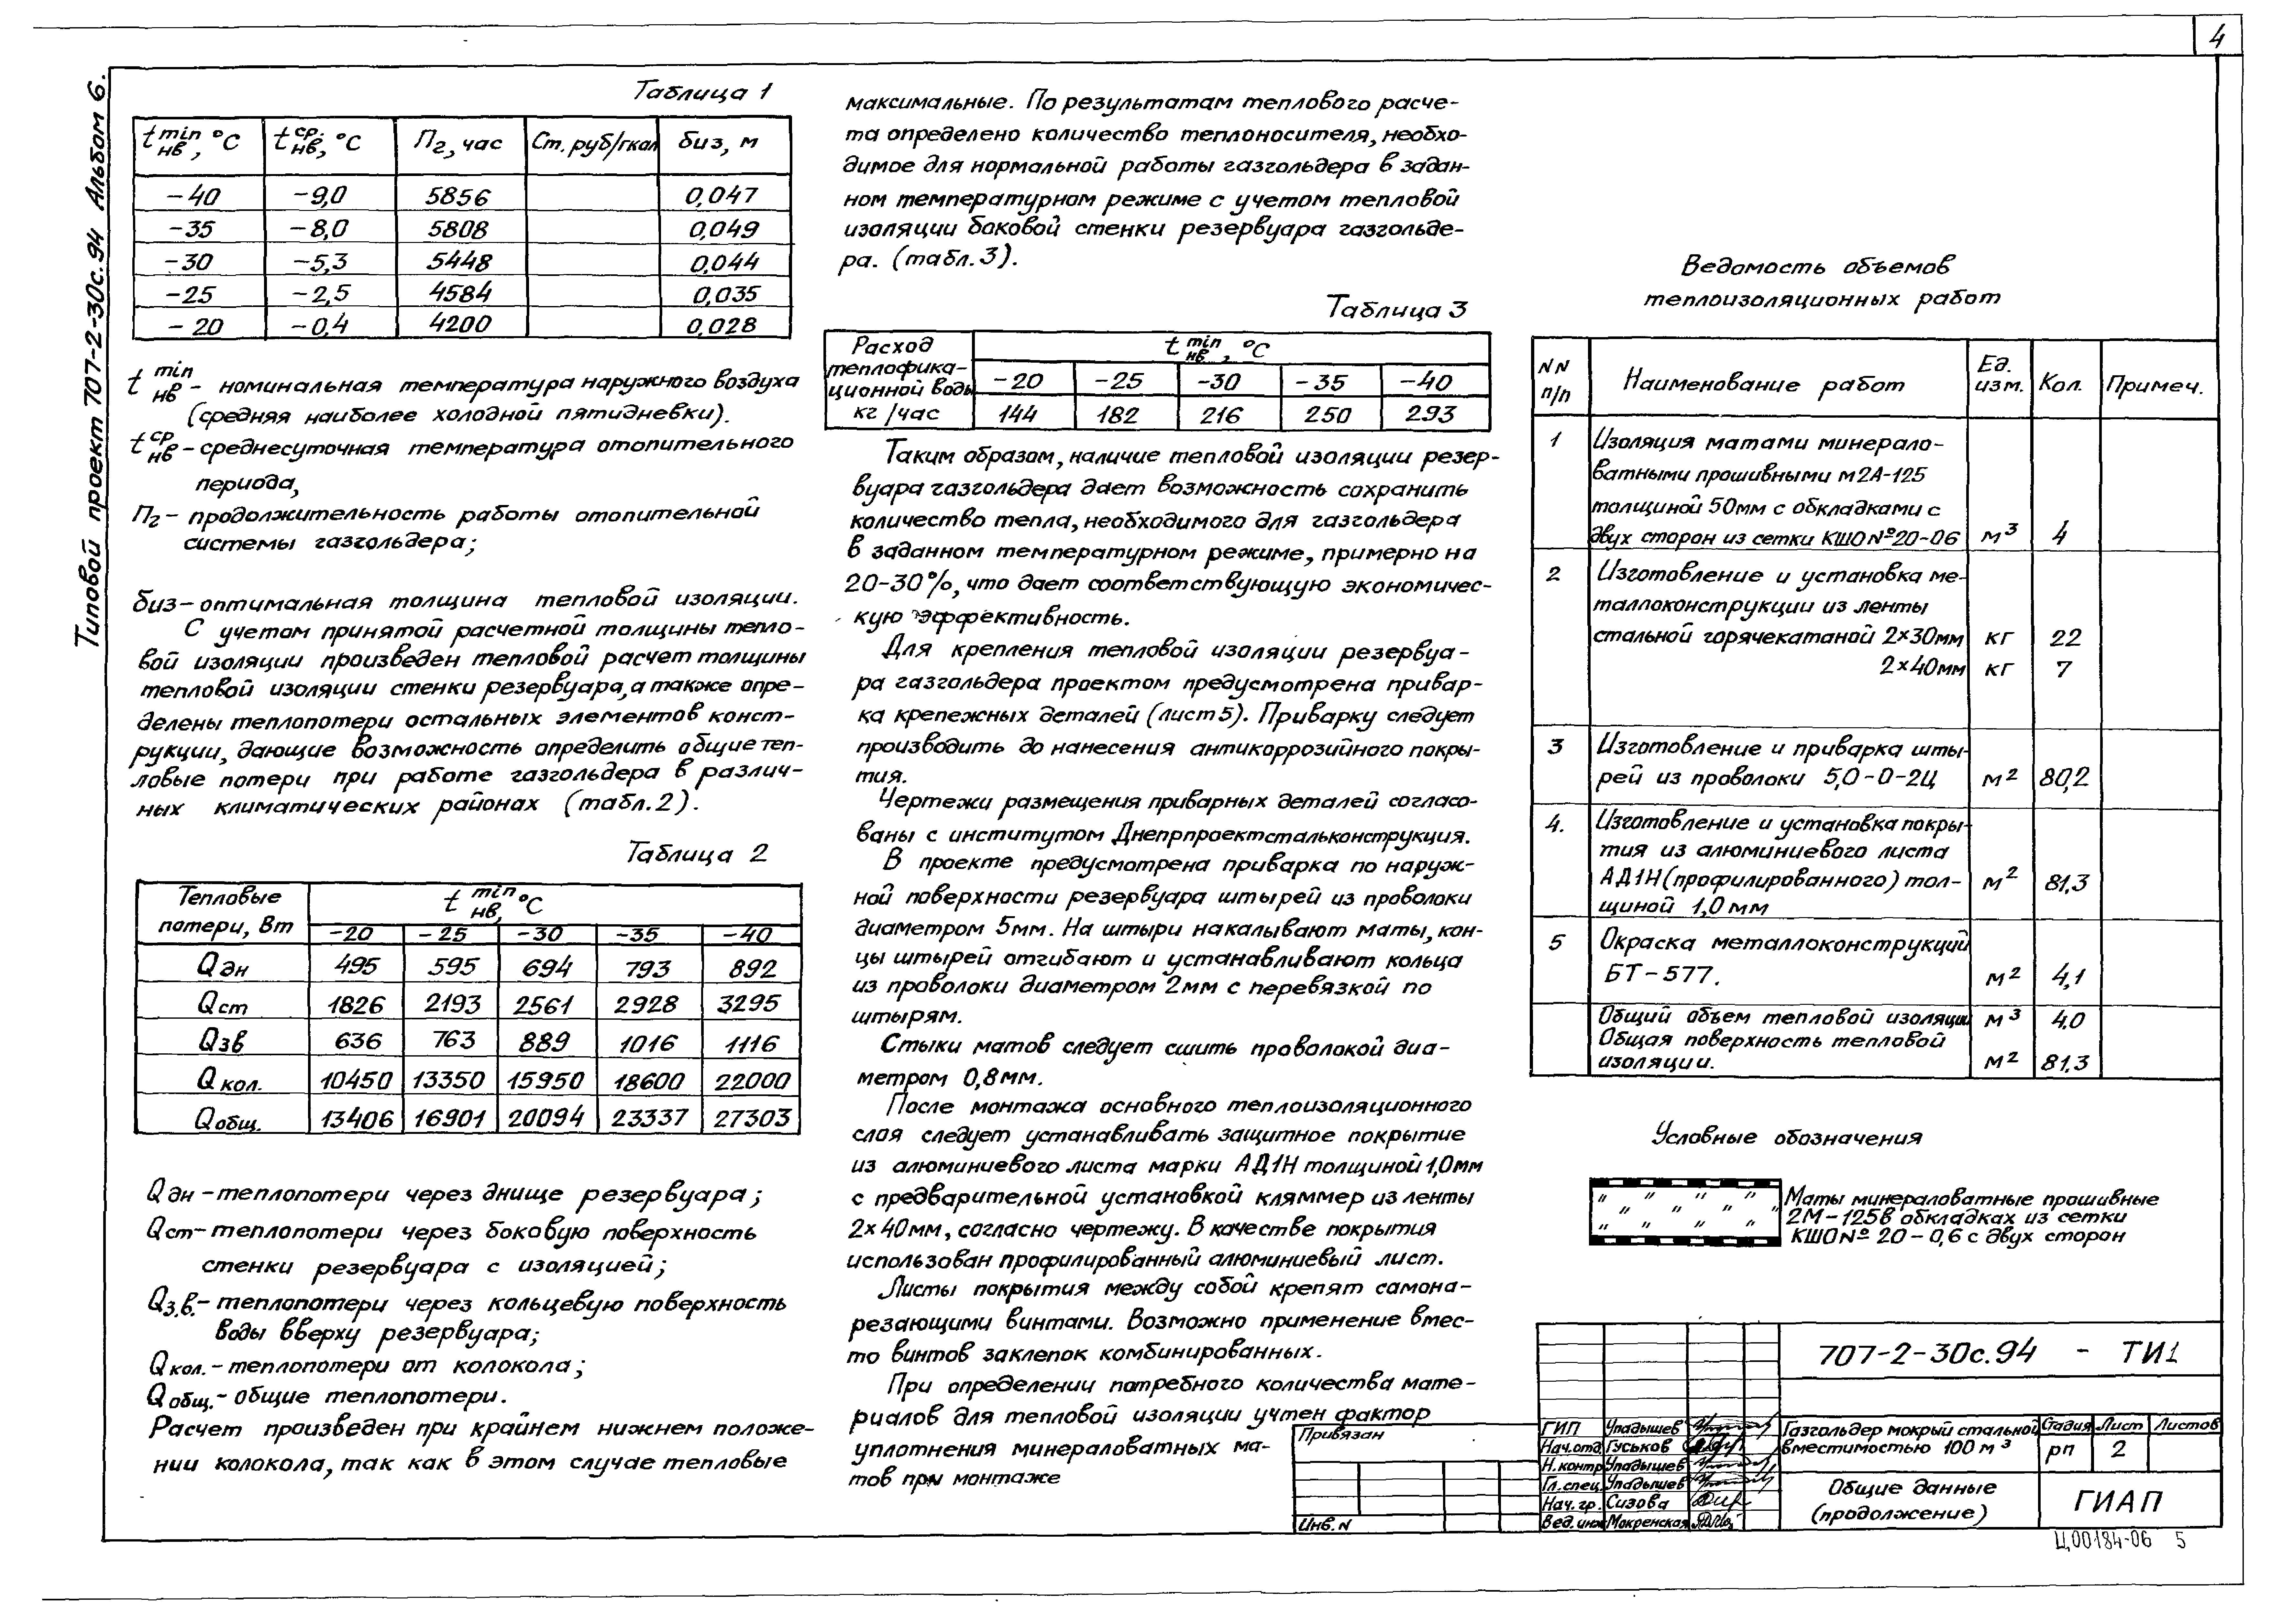 4
Типовой проект 707-2-30с.94 Альбом 6.
Таблица 1
t min нв, °С | t ср. нв, °С | Пг, час | Ст. руб/гкал | биз, м
-40 | -9,0 | 5856 | | 0,047
-35 | -8,0 | 5808 | | 0,049
-30 | -5,3 | 5448 | | 0,044
-25 | -2,5 | 4584 | | 0,035
-20 | -0,4 | 4200 | | 0,028
t min нв - номинальная температура наружного воздуха
(средняя наиболее холодной пятидневки).
t ср нв - среднесуточная температура отопительного
периода,
Пг - продолжительность работы отопительной
системы газгольдера;
биз - оптимальная толщина тепловой изоляции.
С учетом принятой расчетной толщины тепло-
вой изоляции произведен тепловой расчет толщины
тепловой изоляции стенки резервуара, а также опре-
делены теплопотери остальных элементов конст-
рукции, дающие возможность определить общие теп-
ловые потери при работе газгольдера в различ-
ных климатических районах (табл.2).
Таблица 2
Тепловые потери, Вт | t min нв, °С
-20 | -25 | -30 | -35 | -40
Qдн | 495 | 595 | 694 | 793 | 892
Qст | 1826 | 2193 | 2561 | 2928 | 3295
Qзв | 636 | 763 | 889 | 1016 | 1116
Qкол. | 10450 | 13350 | 15950 | 18600 | 22000
Qобщ. | 13406 | 16901 | 20094 | 23337 | 27303
Qдн - теплопотери через днище резервуара;
Qст - теплопотери через боковую поверхность
стенки резервуара с изоляцией;
Qз.в. - теплопотери через кольцевую поверхность
воды вверху резервуара;
Qкол. - теплопотери от колокола;
Qобщ. - общие теплопотери.
Расчет произведен при крайнем нижнем положе-
нии колокола, так как в этом случае тепловые
максимальные. По результатам теплового расче-
та определено количество теплоносителя, необхо-
димое для нормальной работы газгольдера в задан-
ном температурном режиме с учетом тепловой
изоляции боковой стенки резервуара газгольде-
ра. (табл.3).
Таблица 3
Расход теплофика-ционной воды кг/час | t min нв, °С
-20 | -25 | -30 | -35 | -40
144 | 182 | 216 | 250 | 293
Таким образом, наличие тепловой изоляции резер-
вуара газгольдера дает возможность сохранить
количество тепла, необходимого для газгольдера
в заданном температурном режиме, примерно на
20-30%, что дает соответствующую экономичес-
кую эффективность.
Для крепления тепловой изоляции резервуа-
ра газгольдера проектом предусмотрена привар-
ка крепежных деталей (лист 5). Приварку следует
производить до нанесения антикоррозийного покры-
тия.
Чертежи размещения приварных деталей согласо-
ваны с институтом Днепрпроектстальконструкция.
В проекте предусмотрена приварка по наруж-
ной поверхности резервуара штырей из проволоки
диаметром 5мм. На штыри накалывают маты, кон-
цы штырей отгибают и устанавливают кольца
из проволоки диаметром 2мм с перевязкой по
штырям.
Стыки матов следует сшить проволокой диа-
метром 0,8мм.
После монтажа основного теплоизоляционного
слоя следует устанавливать защитное покрытие
из алюминиевого листа марки АД1Н толщиной 1,0мм
с предварительной установкой кляммер из ленты
2×40мм, согласно чертежу. В качестве покрытия
использован профилированный алюминиевый лист.
Листы покрытия между собой крепят самона-
резающими винтами. Возможно применение вмес-
то винтов заклепок комбинированных.
При определении потребного количества мате-
риалов для тепловой изоляции учтен фактор
уплотнения минераловатных ма-
тов при монтаже
Ведомость объемов
теплоизоляционных работ
NN п/п | Наименование работ | Ед. изм. | Кол. | Примеч.
1 | Изоляция матами минерало-
ватными прошивными м2А-125
толщиной 50мм с обкладками с
двух сторон из сетки КШО №20-06 | м³ | 4
2 | Изготовление и установка ме-
таллоконструкции из ленты
стальной горячекатаной 2×30мм | кг | 22
2×40мм | кг | 7
3 | Изготовление и приварка шты-
рей из проволоки 5,0-0-2Ц | м² | 80,2
4. | Изготовление и установка покры-
тия из алюминиевого листа
АД1Н (профилированного) тол- | м² | 81,3
щиной 1,0мм
5 | Окраска металлоконструкций
БТ-577. | м² | 4,1
Общий объем тепловой изоляции | м³ | 4,0
Общая поверхность тепловой
изоляции. | м² | 81,3
Условные обозначения
Маты минераловатные прошивные
2М-125в обкладках из сетки
КШО № 20-0,6 с двух сторон
Привязан
Инв. N
ГИП Упадышев
Нач.отд. Гуськов
Н. контр Упадышев
Гл. спец. Упадышев
Нач. гр. Сизова
Вед. инж Мокренская
707-2-30с.94 - ТИ1
Газгольдер мокрый стальной
вместимостью 100 м³
Стадия | Лист | Листов
рп | 2
Общие данные
(продолжение)
ГИАП
Ц.00184-06 5